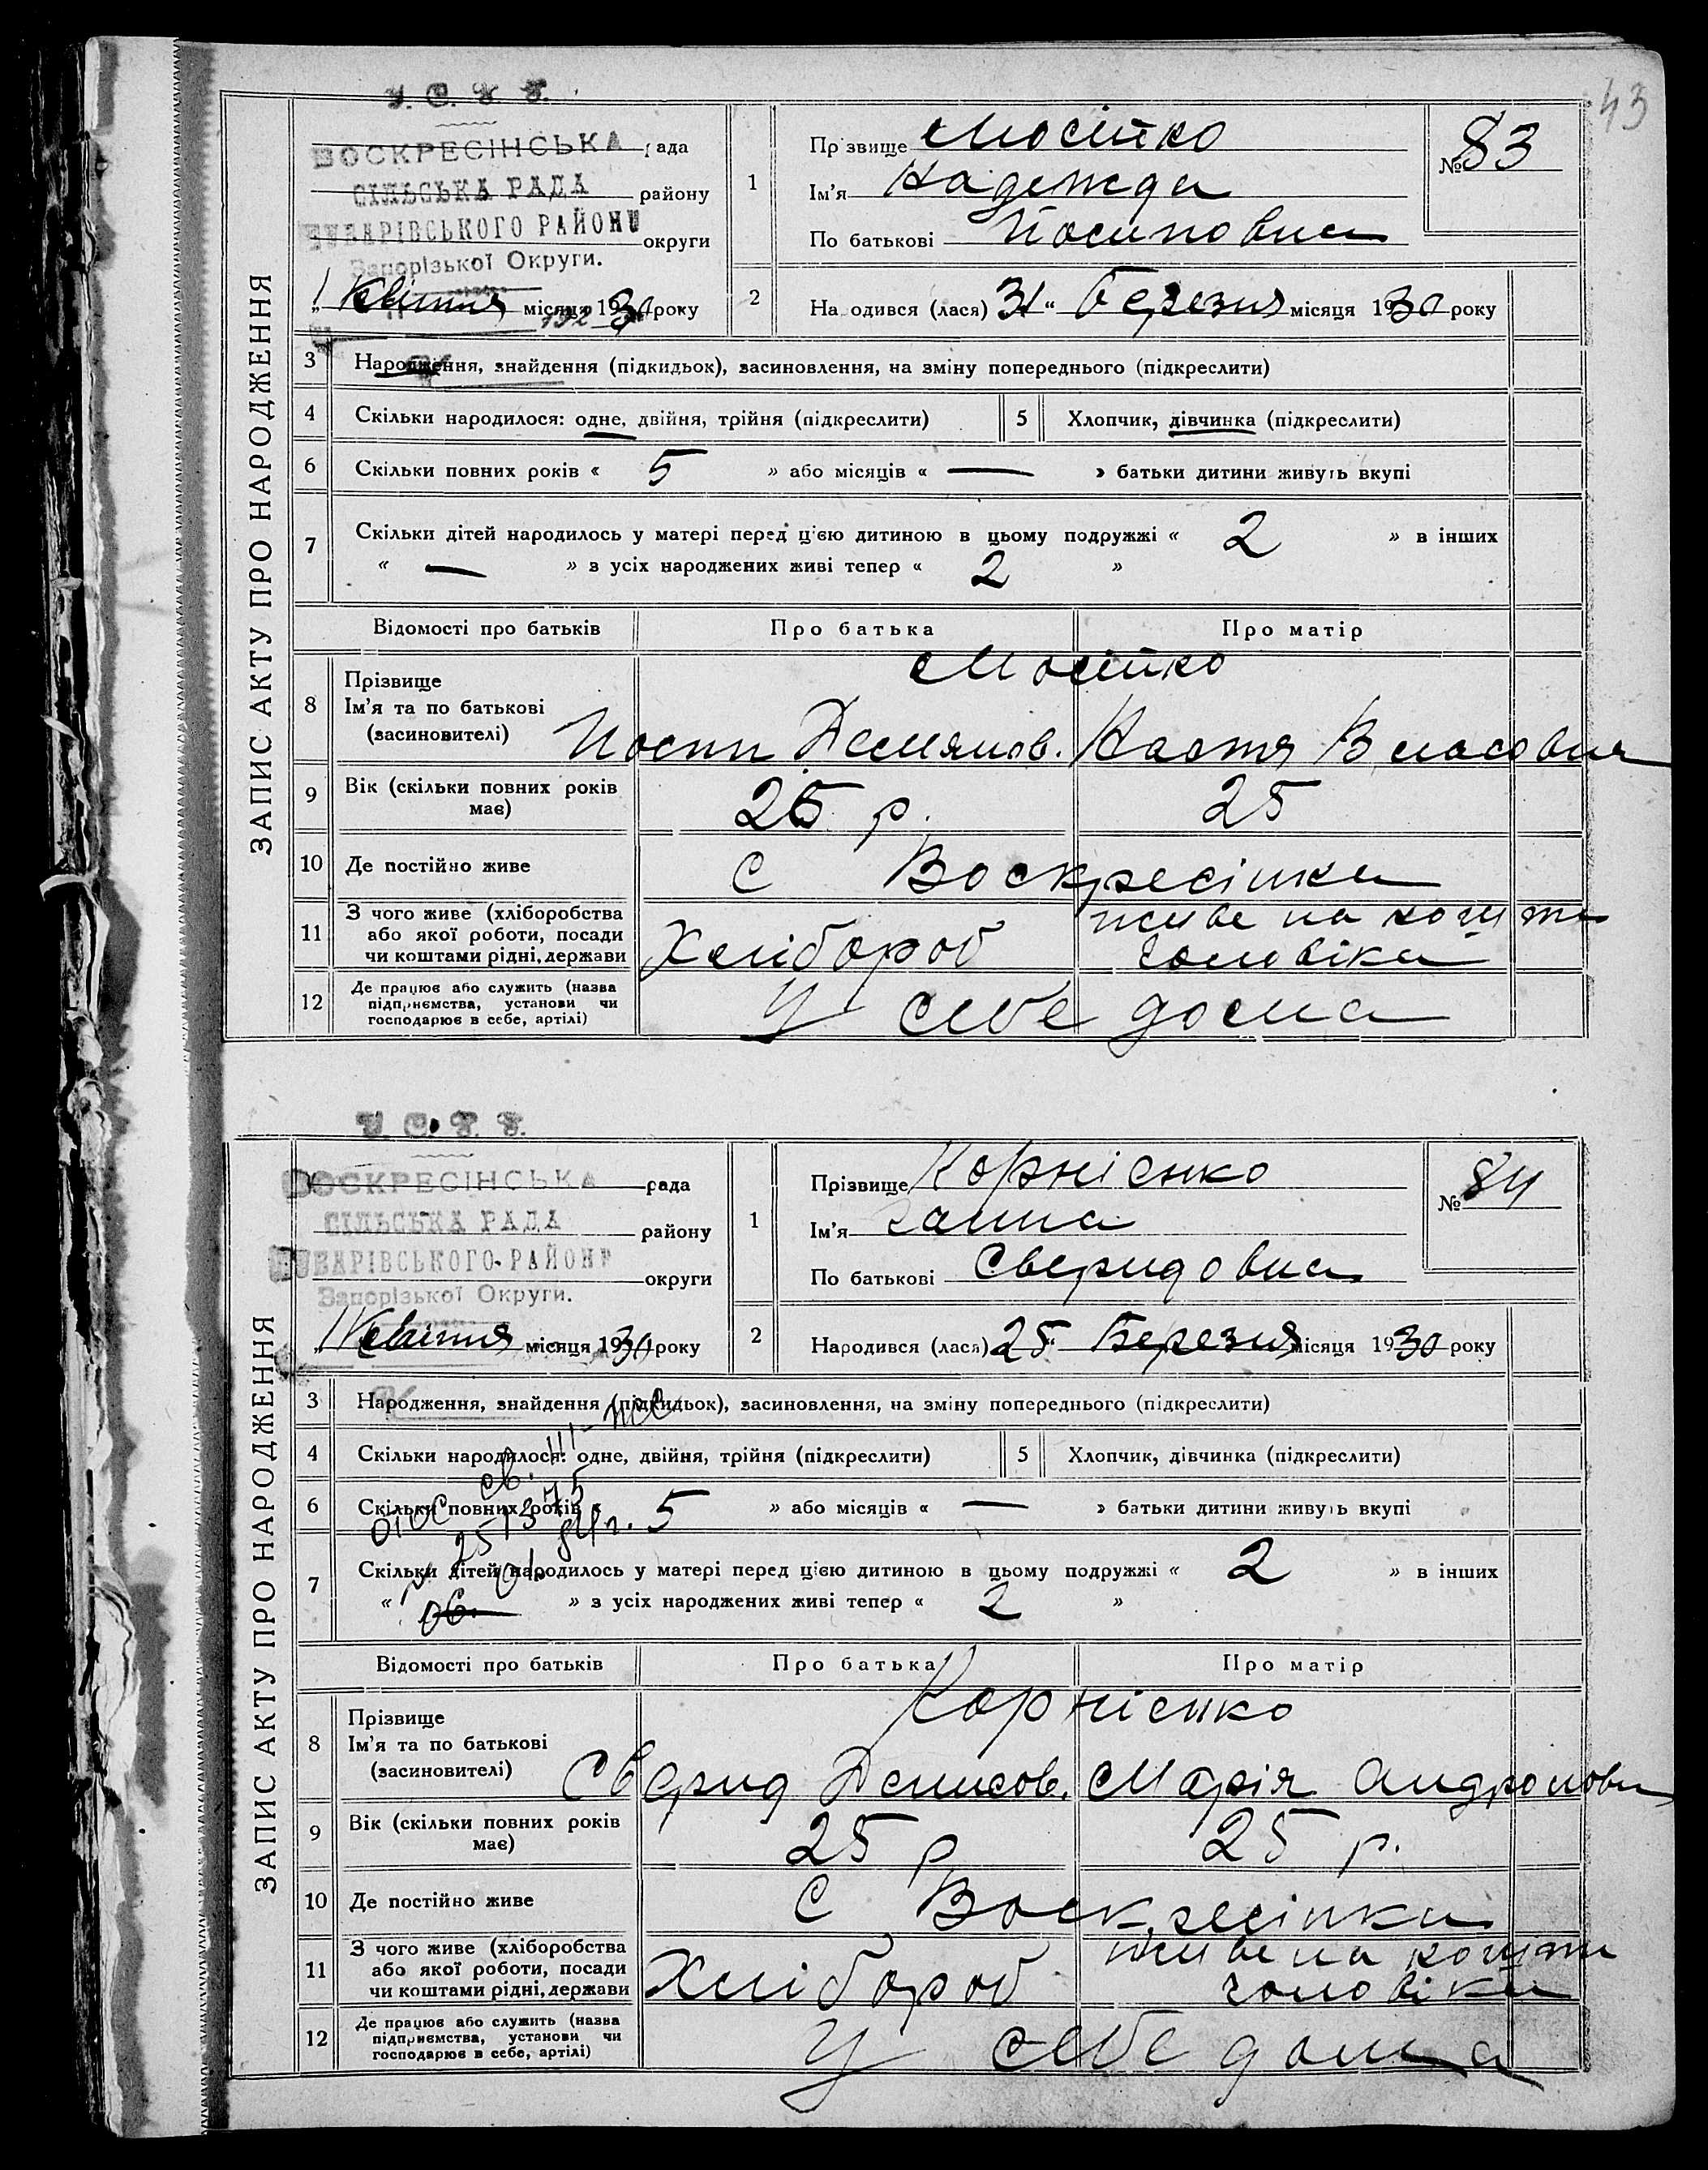 43
У. С. Р. Р.
ВОСКРЕСІНСЬКА рада
СІЛЬСЬКА РАДА району
ЧУБАРІВСЬКОГО РАЙОНУ округи
Запорізької Округи.
1 Квітня місяця 1930 року
1
Прізвище Мосійко
Ім'я Надежда
По батькові Йосиповна
№ 83
2
Народився (лася) 31 " Березня місяця 1930 року
ЗАПИС АКТУ ПРО НАРОДЖЕННЯ
3 Народження, знайдення (підкидьок), засиновлення, на зміну попереднього (підкреслити)
4 Скільки народилося: одне, двійня, трійня (підкреслити) 5 Хлопчик, дівчинка (підкреслити)
6 Скільки повних років « 5 » або місяців « — » батьки дитини живуть вкупі
7 Скільки дітей народилось у матері перед цією дитиною в цьому подружжі « 2 » в інших
« — » з усіх народжених живі тепер « 2 »
Відомості про батьків Про батька Про матір
8 Прізвище Ім'я та по батькові (засиновителі)
Мосійко
Йосип Демянов. Настя Власовна
9 Вік (скільки повних років має) 25 р. 25
10 Де постійно живе С Воскресінка
11 З чого живе (хліборобства або якої роботи, посади чи коштами рідні, держави
Хлібороб живе на кошти чоловіка
12 Де працює або служить (назва підприємства, установи чи господарює в себе, артілі)
У себе дома
У. С. Р. Р.
ВОСКРЕСІНСЬКА рада
СІЛЬСЬКА РАДА району
ЧУБАРІВСЬКОГО РАЙОНУ округи
Запорізької Округи.
1 Квітня місяця 1930 року
1
Прізвище Корнієнко
Ім'я Ганна
По батькові Сверидовна
№ 84
2
Народився (лася) 25 " Березня місяця 1930 року
ЗАПИС АКТУ ПРО НАРОДЖЕННЯ
3 Народження, знайдення (підкидьок), засиновлення, на зміну попереднього (підкреслити)
4 Скільки народилося: одне, двійня, трійня (підкреслити) 5 Хлопчик, дівчинка (підкреслити)
6 Скільки повних років « 5 » або місяців « — » батьки дитини живуть вкупі
7 Скільки дітей народилось у матері перед цією дитиною в цьому подружжі « 2 » в інших
« — » з усіх народжених живі тепер « 2 »
Відомості про батьків Про батька Про матір
8 Прізвище Ім'я та по батькові (засиновителі)
Корнієнко
Сверид Денисов. Марія Андроновн
9 Вік (скільки повних років має) 25 р 25 р.
10 Де постійно живе С Воскресінка
11 З чого живе (хліборобства або якої роботи, посади чи коштами рідні, держави
Хлібороб живе на кошти чоловіка
12 Де працює або служить (назва підприємства, установи чи господарює в себе, артілі)
У себе дома